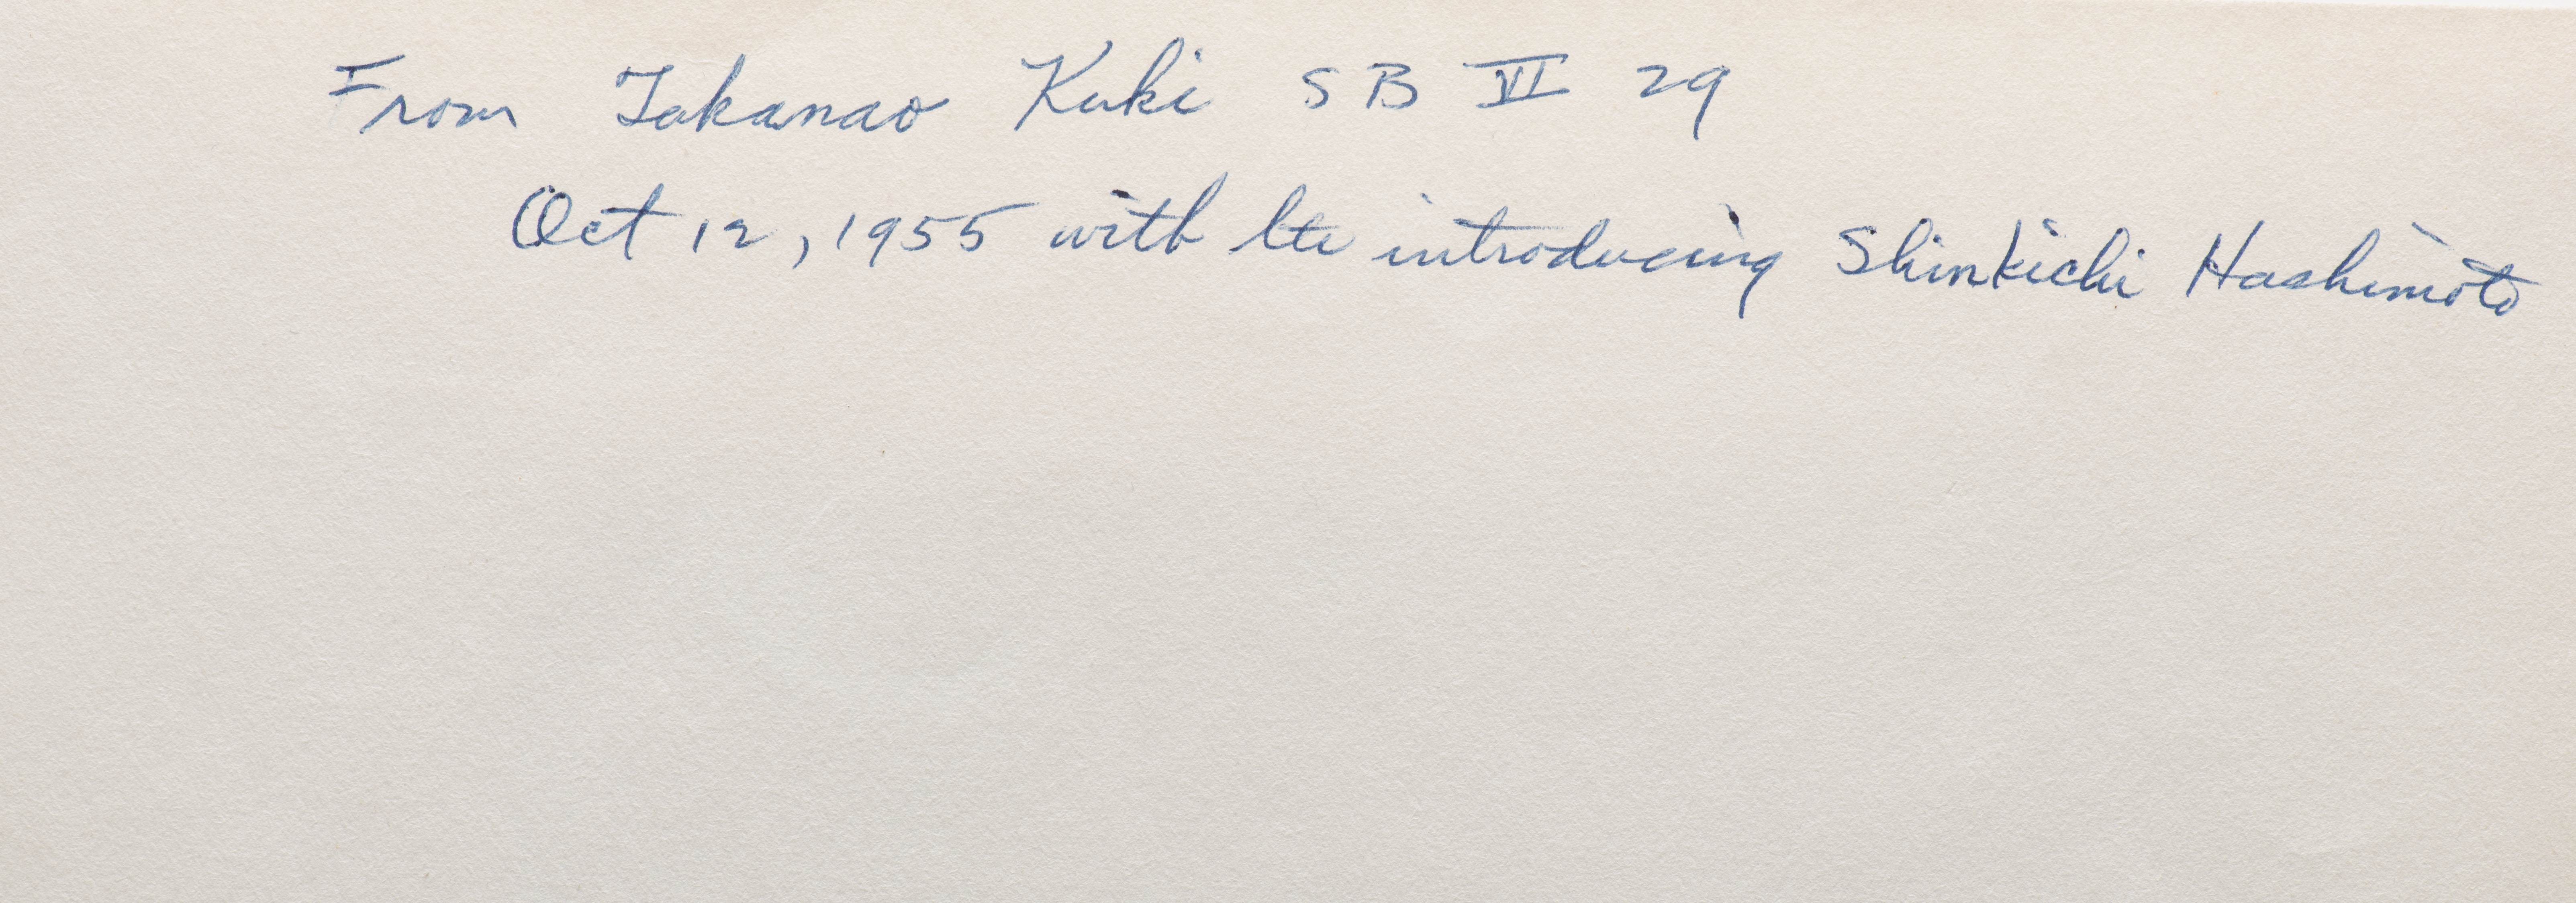 From Takanao Kuki SB VI 29
Oct 12, 1955 with ltr introducing Shinkichi Hashimoto